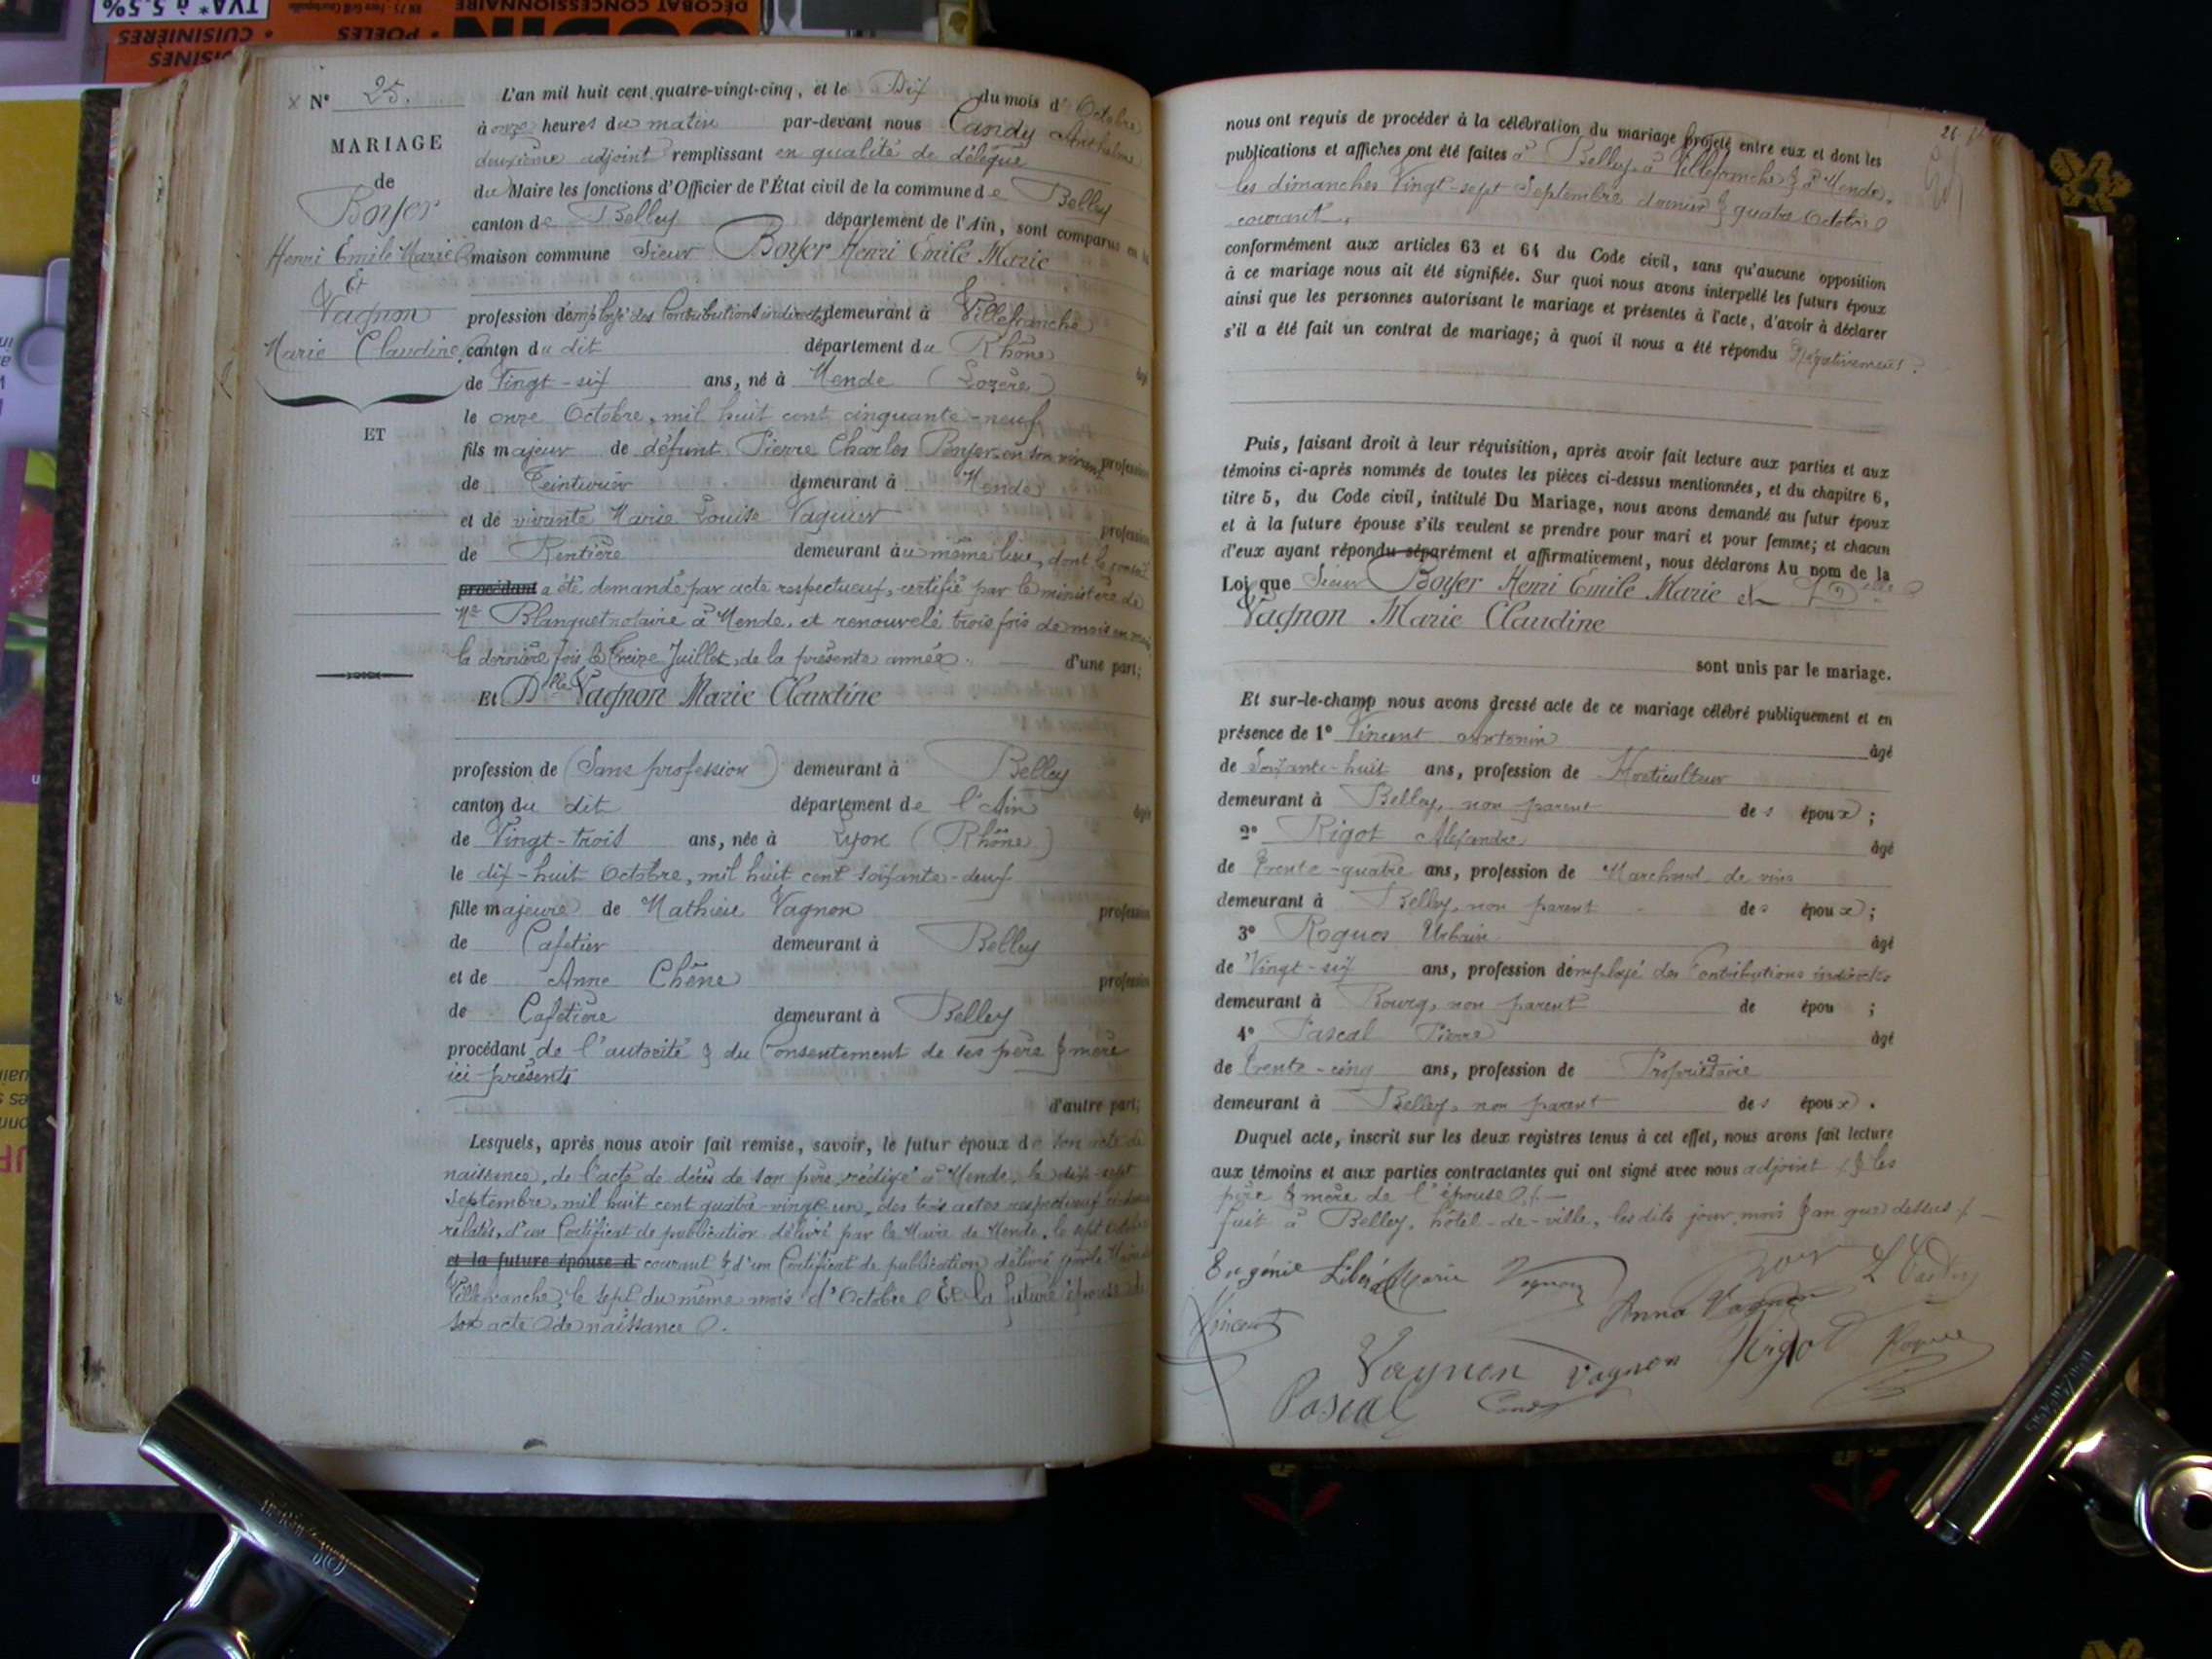 N° 25.
MARIAGE
de
Boyer
Henri Emile Marie
Et
Vagnon
Marie Claudine
ET
L'an mil huit cent quatre-vingt-cinq, et le Dix du mois d'Octobre
à onze heures du matin par-devant nous Candy Anthelme
deuxième adjoint remplissant en qualité de délégué
du Maire les fonctions d'Officier de l'État civil de la commune de Belley
canton de Belley département de l'Ain, sont comparus en la
maison commune Sieur Boyer Henri Emile Marie
profession d'employé des Contributions indirectes demeurant à Villefranche
canton du dit département du Rhône âgé
de Vingt-six ans, né à Mende (Lozère)
le onze Octobre, mil huit cent cinquante-neuf
fils majeur de défunt Pierre Charles Boyer, en son vivant profession
de Teinturier demeurant à Mende
et de vivante Marie Louise Vaguier profession
de Rentière demeurant au même lieu, dont le consent
procédant a été demandé par acte respectueux, certifié par le ministère de
Me Blanquet notaire à Mende, et renouvelé trois fois de mois en mois
la dernière fois le Treize Juillet, de la présente année. d'une part;
Et Dlle Vagnon Marie Claudine
profession de (Sans profession) demeurant à Belley
canton du dit département de l'Ain âgée
de Vingt-trois ans, née à Lyon (Rhône)
le dix-huit Octobre, mil huit cent soixante-deux
fille majeure de Mathieu Vagnon profession
de Cafetier demeurant à Belley
et de Anne Chêne profession
de Cafetière demeurant à Belley
procédant de l'autorité & du Consentement de ses père & mère
ici présents
d'autre part;
Lesquels, après nous avoir fait remise, savoir, le futur époux de son acte de
naissance, de l'acte de décès de son père, rédigé à Mende, le dix-sept
Septembre, mil huit cent quatre-vingt-un, des trois actes respectueux ci-dessus
relatés, d'un Certificat de publication délivré par le Maire de Mende, le sept Octobre
et la future épouse d courant & d'un Certificat de publication délivré par le Maire de
Villefranche, le sept du même mois d'Octobre Et la future épouse de
son acte de naissance.
26
nous ont requis de procéder à la célébration du mariage projeté entre eux et dont les
publications et affiches ont été faites à Belley, à Villefranche & à Mende,
les dimanches Vingt-sept Septembre dernier & quatre Octobre
courant,
conformément aux articles 63 et 64 du Code civil, sans qu'aucune opposition
à ce mariage nous ait été signifiée. Sur quoi nous avons interpellé les futurs époux
ainsi que les personnes autorisant le mariage et présentes à l'acte, d'avoir à déclarer
s'il a été fait un contrat de mariage; à quoi il nous a été répondu Négativement.
Puis, faisant droit à leur réquisition, après avoir fait lecture aux parties et aux
témoins ci-après nommés de toutes les pièces ci-dessus mentionnées, et du chapitre 6,
titre 5, du Code civil, intitulé Du Mariage, nous avons demandé au futur époux
et à la future épouse s'ils veulent se prendre pour mari et pour femme; et chacun
d'eux ayant répondu séparément et affirmativement, nous déclarons Au nom de la
Loi que Sieur Boyer Henri Emile Marie et Delle
Vagnon Marie Claudine
sont unis par le mariage.
Et sur-le-champ nous avons dressé acte de ce mariage célébré publiquement et en
présence de 1° Vincent Antonin âgé
de Soixante-huit ans, profession de Horticulteur
demeurant à Belley, non parent des époux;
2° Rigot Alexandre âgé
de Trente-quatre ans, profession de Marchand de vins
demeurant à Belley, non parent des époux;
3° Roques Urbain âgé
de Vingt-six ans, profession d'employé des Contributions indirectes
demeurant à Bourg, non parent de épou ;
4° Pascal Pierre âgé
de Trente-cinq ans, profession de Propriétaire
demeurant à Belley, non parent des époux.
Duquel acte, inscrit sur les deux registres tenus à cet effet, nous avons fait lecture
aux témoins et aux parties contractantes qui ont signé avec nous adjoint & les
père & mère de l'épouse.
fait à Belley, hôtel-de-ville, les dits jour, mois & an que dessus
Eugénie Marie Vagnon
Vincent Anna Vagnon
Vagnon Vagnon Rigot Roques
Pascal Candy